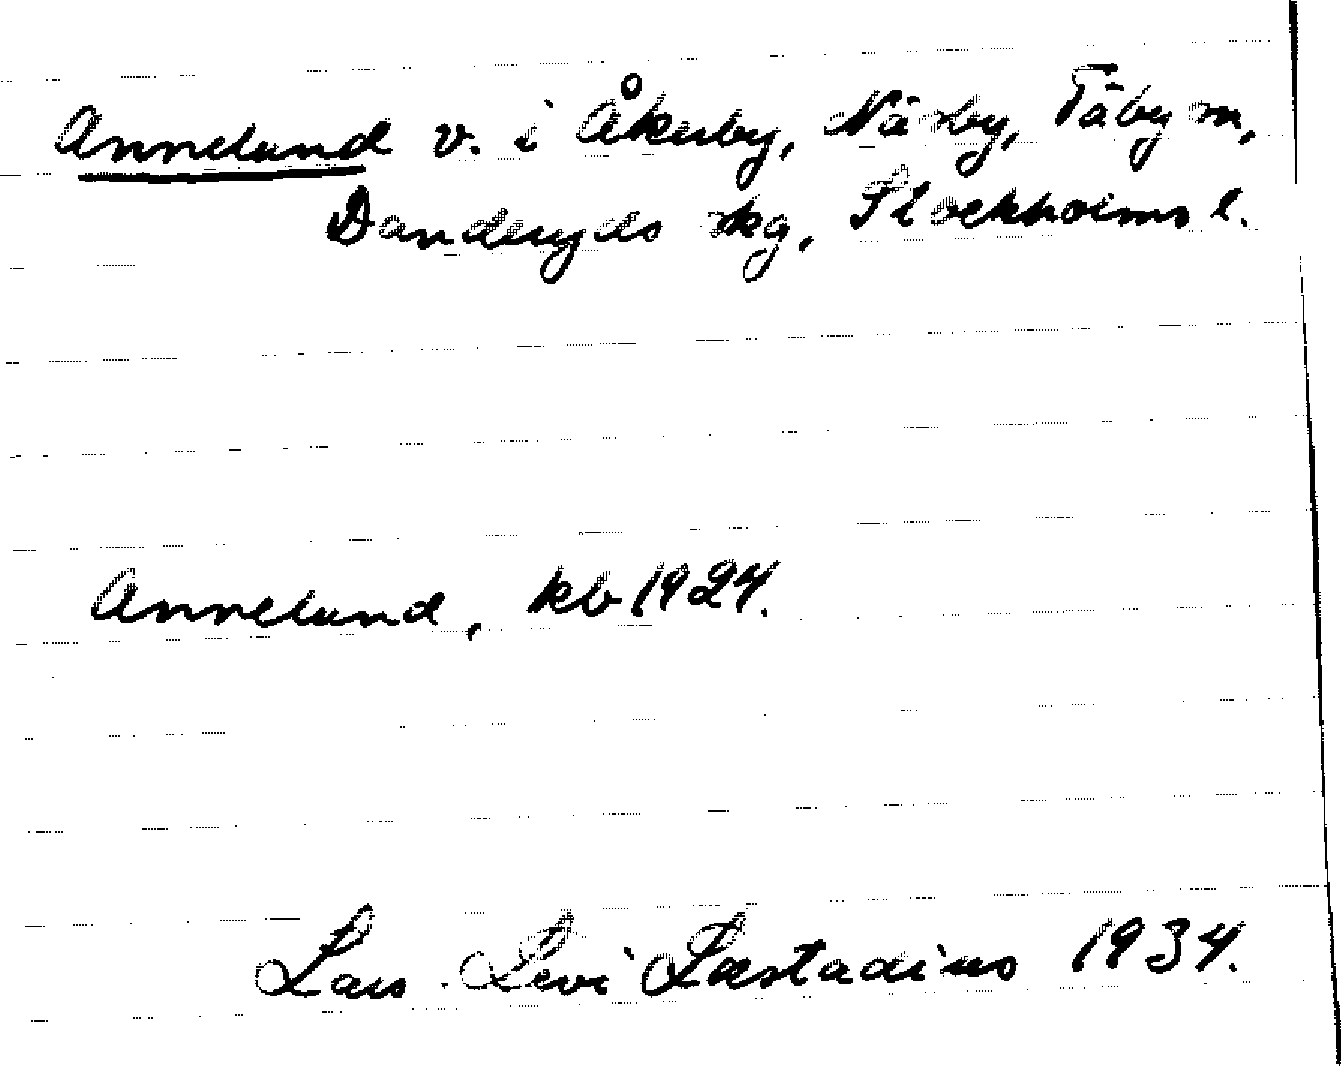 Annelund v. i Åkerby, Näsby, Täby sn,
Danderyds skg, Stockholms l.
Annelund, kb 1924.
Lars-Levi Læstadius 1934.